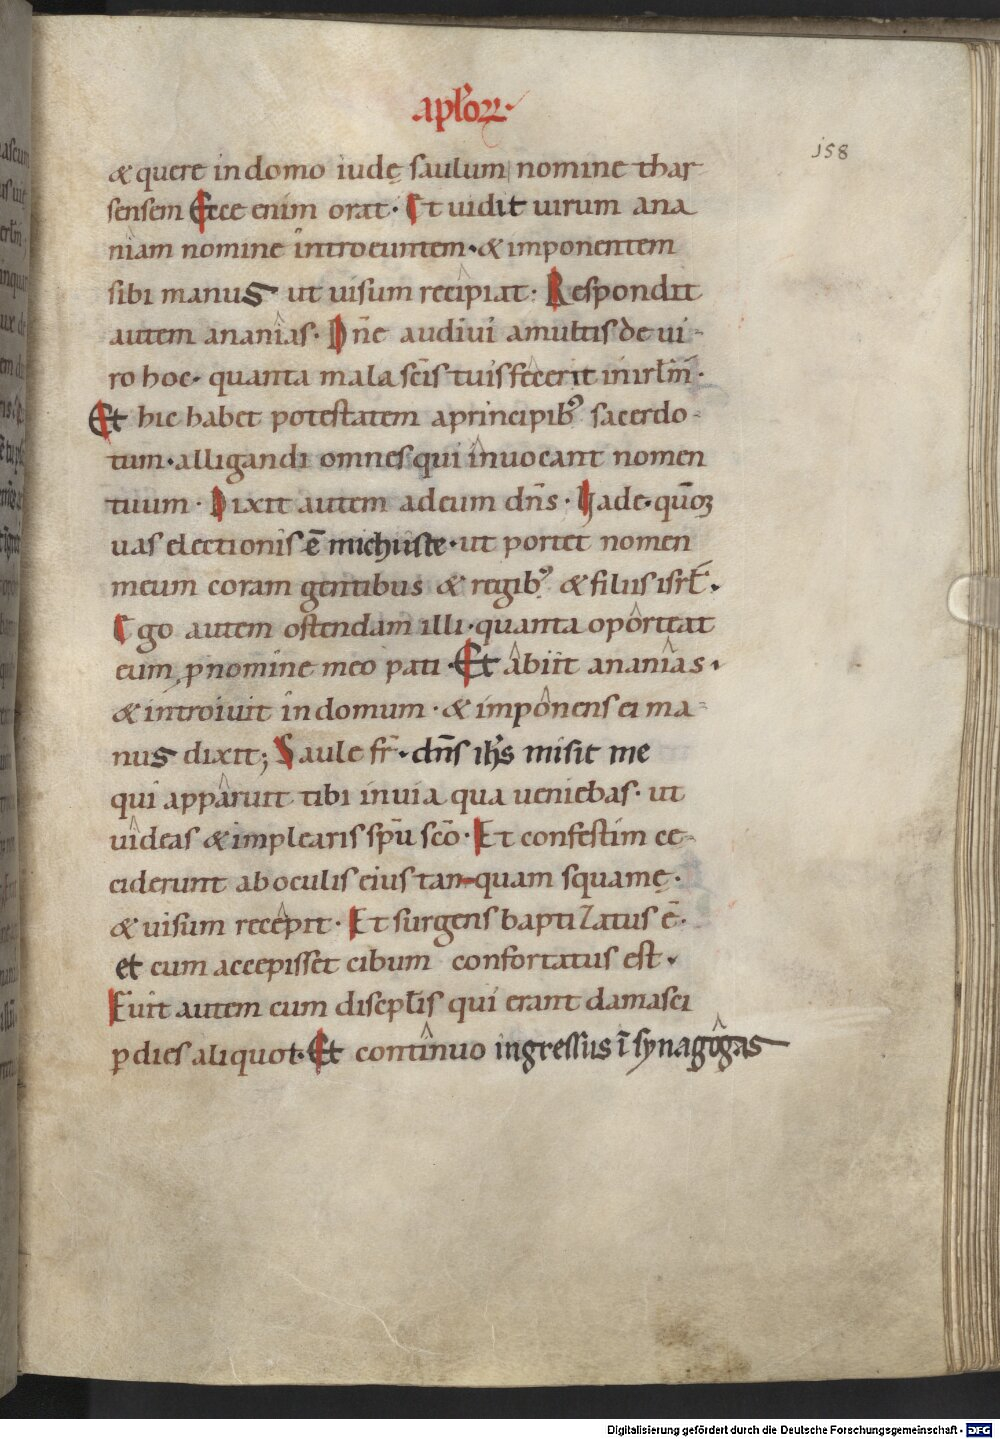 apl̄oꝝ·
158
& quere in domo iudę saulum nomine thar
sensem Ecce enim orat· Et uidit uirum ana
niam nomine introeuntem·& imponentem
sibi manus ut uisum recipiat· Respondit
autem ananias· Dn̄e audiui amultis de ui-
ro hoc· quanta mala sc̄is tuis fecerit in irl̄m̄·
Et hic habet potestatem aprincipibꝰ sacerdo-
tum·alligandi omnes qui inuocant nomen
tuum· Dixit autem adeum dn̄s· Uade·qūoꝫ
uas electionis ē michi iste·ut portet nomen
meum coram gentibus & regibꝰ & filiis isrl̄·
Ego autem ostendam illi·quanta oporteat
eum ꝓ nomine meo pati·Et abiit ananias·
& introiuit in domum·& imponens ei ma-
nus dixit; Saule fr̄·dn̄s ih̄s misit me
qui apparuit tibi inuia qua ueniebas· ut
uideas & implearis sp̄u sc̄o· Et confestim ce-
ciderunt ab oculis eius tan-quam squamę·
& uisum recepit· Et surgens baptizatus ē·
et cum accepisset cibum confortatus est·
Fuit autem cum discipl̄is qui erant damasci
ꝑ dies aliquot·Et continuo ingressus ī synagogas
Digitalisierung gefördert durch die Deutsche Forschungsgemeinschaft - DFG